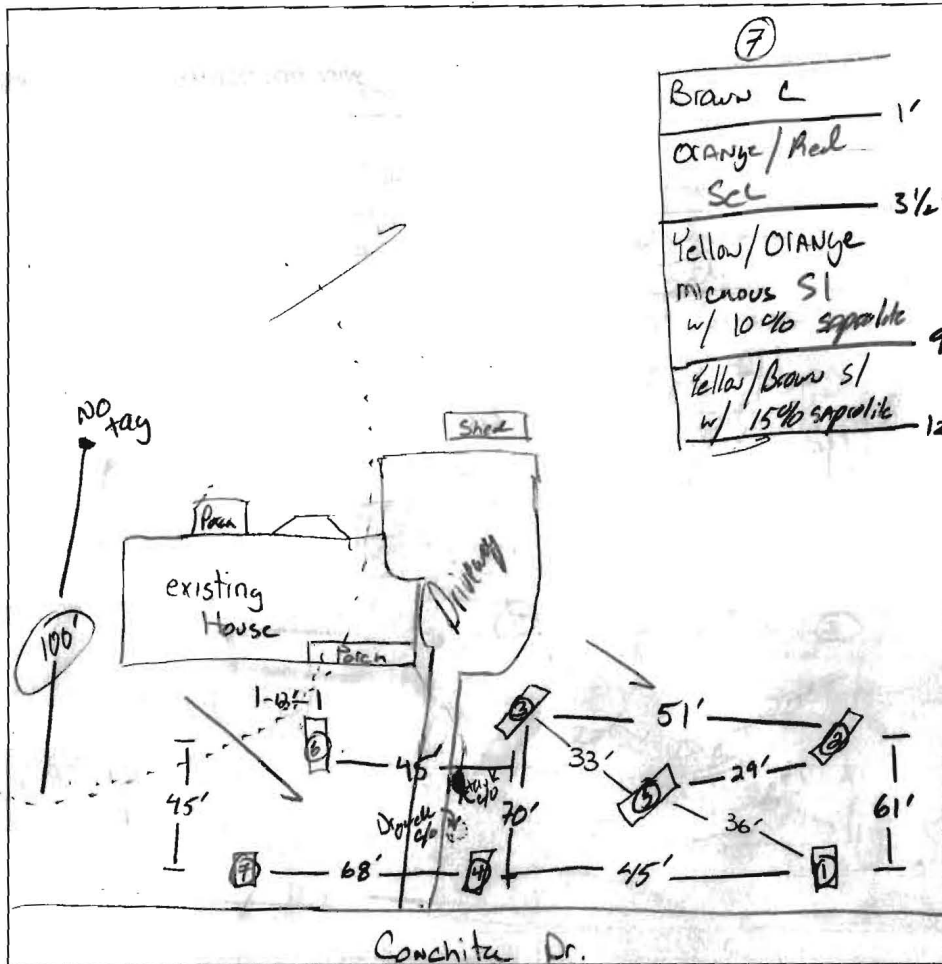 7
Brown L
1'
Orange/Red
ScL
3½
Yellow/Orange
micaous Sl
w/ 10% saprolite
9
Yellow/Brown Sl
w/ 15% saprolite
12
NO
tag
100'
Shed
Porch
existing
House
Driveway
Porch
13'
6
45'
45'
c/o
Drywell
c/o
3
51'
2
33'
5
29'
36'
70'
61'
7
68'
4
45'
1
Conchita Dr.